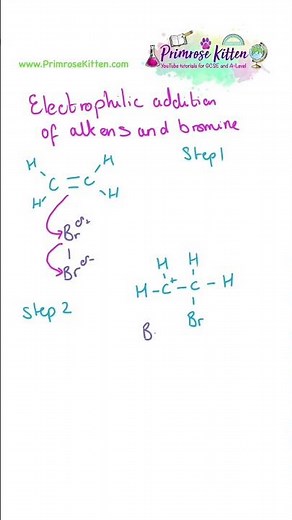 www.PrimroseKitten.com
Primrose Kitten
YouTube tutorials for GCSE and A-Level
Electrophilic addition
of alkens and bromine
Step 1
H H
C = C
H H
Br δ+
Br δ-
Step 2
H H
H - C+ - C - H
Br
B